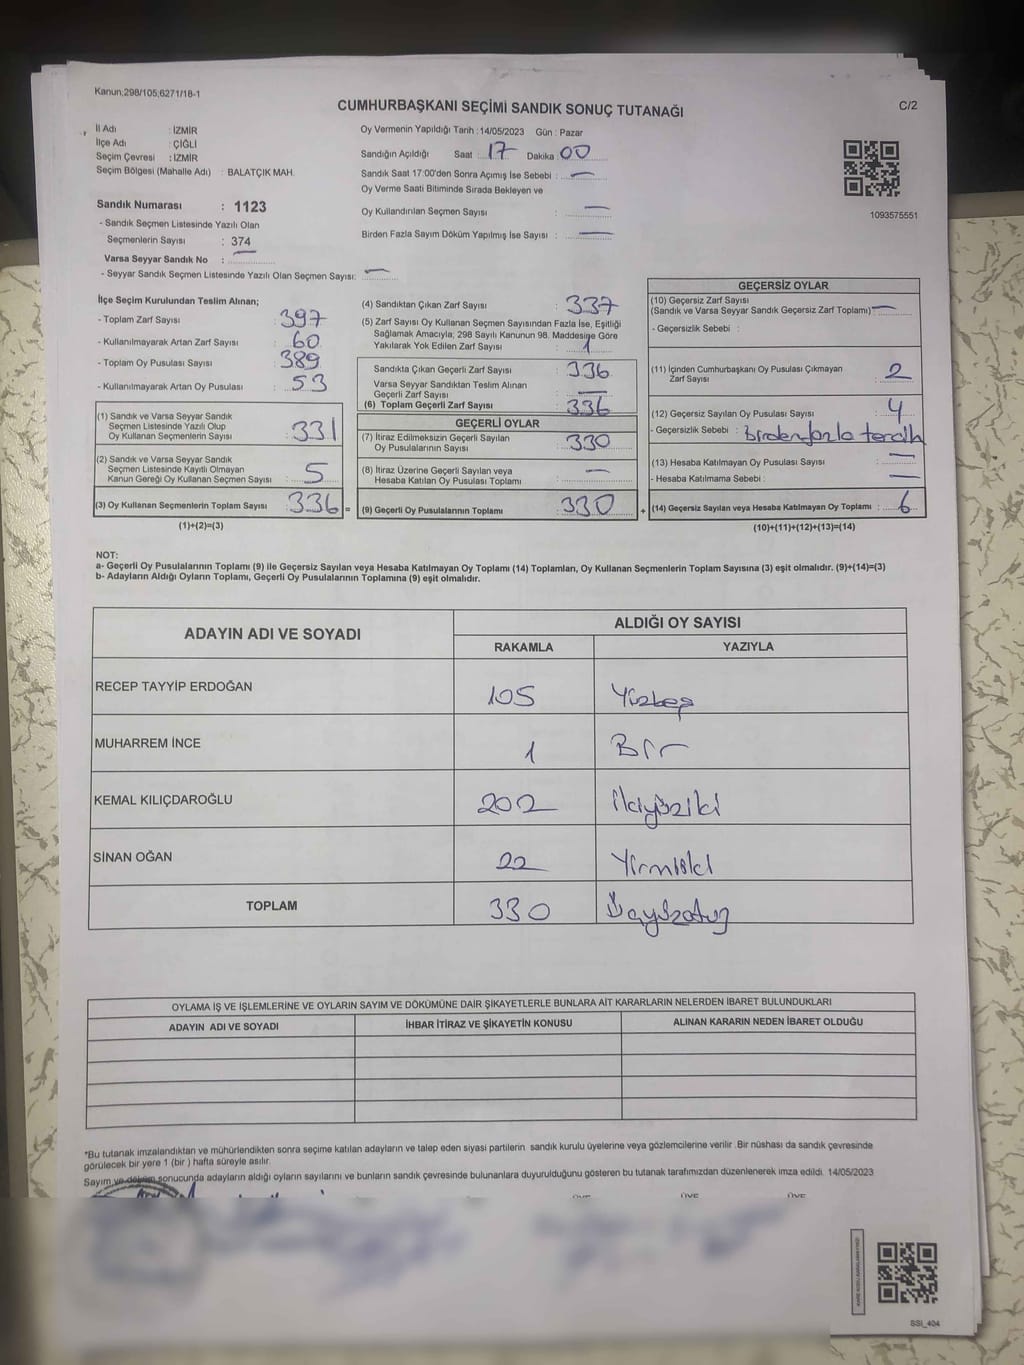 Kanun:298/105;6271/18-1
CUMHURBAŞKANI SEÇİMİ SANDIK SONUÇ TUTANAĞI
C/2
İl Adı : İZMİR
İlçe Adı : ÇİĞLİ
Seçim Çevresi : İZMİR
Seçim Bölgesi (Mahalle Adı) : BALATÇIK MAH.
Sandık Numarası : 1123
- Sandık Seçmen Listesinde Yazılı Olan
Seçmenlerin Sayısı : 374
Varsa Seyyar Sandık No : —
- Seyyar Sandık Seçmen Listesinde Yazılı Olan Seçmen Sayısı: —
Oy Vermenin Yapıldığı Tarih : 14/05/2023 Gün : Pazar
Sandığın Açıldığı Saat : 17 Dakika : 00
Sandık Saat 17:00'den Sonra Açımış İse Sebebi : —
Oy Verme Saati Bitiminde Sırada Bekleyen ve
Oy Kullandırılan Seçmen Sayısı : —
Birden Fazla Sayım Döküm Yapılmış İse Sayısı : —
1093575551
İlçe Seçim Kurulundan Teslim Alınan;
- Toplam Zarf Sayısı : 397
- Kullanılmayarak Artan Zarf Sayısı : 60
- Toplam Oy Pusulası Sayısı : 389
- Kullanılmayarak Artan Oy Pusulası : 53
(1) Sandık ve Varsa Seyyar Sandık
Seçmen Listesinde Yazılı Olup
Oy Kullanan Seçmenlerin Sayısı : 331
(2) Sandık ve Varsa Seyyar Sandık
Seçmen Listesinde Kayıtlı Olmayan
Kanun Gereği Oy Kullanan Seçmen Sayısı : 5
(3) Oy Kullanan Seçmenlerin Toplam Sayısı : 336 =
(1)+(2)=(3)
(4) Sandıktan Çıkan Zarf Sayısı : 337
(5) Zarf Sayısı Oy Kullanan Seçmen Sayısından Fazla İse, Eşitliği
Sağlamak Amacıyla; 298 Sayılı Kanunun 98. Maddesine Göre
Yakılarak Yok Edilen Zarf Sayısı : 1
Sandıkta Çıkan Geçerli Zarf Sayısı : 336
Varsa Seyyar Sandıktan Teslim Alınan
Geçerli Zarf Sayısı : —
(6) Toplam Geçerli Zarf Sayısı : 336
GEÇERLİ OYLAR
(7) İtiraz Edilmeksizin Geçerli Sayılan
Oy Pusulalarının Sayısı : 330
(8) İtiraz Üzerine Geçerli Sayılan veya
Hesaba Katılan Oy Pusulası Toplamı : —
(9) Geçerli Oy Pusulalarının Toplamı : 330 +
GEÇERSİZ OYLAR
(10) Geçersiz Zarf Sayısı
(Sandık ve Varsa Seyyar Sandık Geçersiz Zarf Toplamı) : —
- Geçersizlik Sebebi :
(11) İçinden Cumhurbaşkanı Oy Pusulası Çıkmayan
Zarf Sayısı : 2
(12) Geçersiz Sayılan Oy Pusulası Sayısı : 4
- Geçersizlik Sebebi : birden fazla tercih
(13) Hesaba Katılmayan Oy Pusulası Sayısı : —
- Hesaba Katılmama Sebebi : —
(14) Geçersiz Sayılan veya Hesaba Katılmayan Oy Toplamı : 6
(10)+(11)+(12)+(13)=(14)
NOT:
a- Geçerli Oy Pusulalarının Toplamı (9) ile Geçersiz Sayılan veya Hesaba Katılmayan Oy Toplamı (14) Toplamları, Oy Kullanan Seçmenlerin Toplam Sayısına (3) eşit olmalıdır. (9)+(14)=(3)
b- Adayların Aldığı Oyların Toplamı, Geçerli Oy Pusulalarının Toplamına (9) eşit olmalıdır.
ADAYIN ADI VE SOYADI
ALDIĞI OY SAYISI
RAKAMLA YAZIYLA
RECEP TAYYİP ERDOĞAN 105 Yüzbeş
MUHARREM İNCE 1 Bir
KEMAL KILIÇDAROĞLU 202 ikiyüziki
SİNAN OĞAN 22 Yirmiiki
TOPLAM 330 Üçyüzotuz
OYLAMA İŞ VE İŞLEMLERİNE VE OYLARIN SAYIM VE DÖKÜMÜNE DAİR ŞİKAYETLERLE BUNLARA AİT KARARLARIN NELERDEN İBARET BULUNDUKLARI
ADAYIN ADI VE SOYADI İHBAR İTİRAZ VE ŞİKAYETİN KONUSU ALINAN KARARIN NEDEN İBARET OLDUĞU
*Bu tutanak imzalandıktan ve mühürlendikten sonra seçime katılan adayların ve talep eden siyasi partilerin sandık kurulu üyelerine veya gözlemcilerine verilir .Bir nüshası da sandık çevresinde
görülecek bir yere 1 (bir ) hafta süreyle asılır.
Sayım ve döküm sonucunda adayların aldığı oyların sayılarını ve bunların sandık çevresinde bulunanlara duyurulduğunu gösteren bu tutanak tarafımızdan düzenlenerek imza edildi. 14/05/2023
ÜYE ÜYE ÜYE
SSI_404